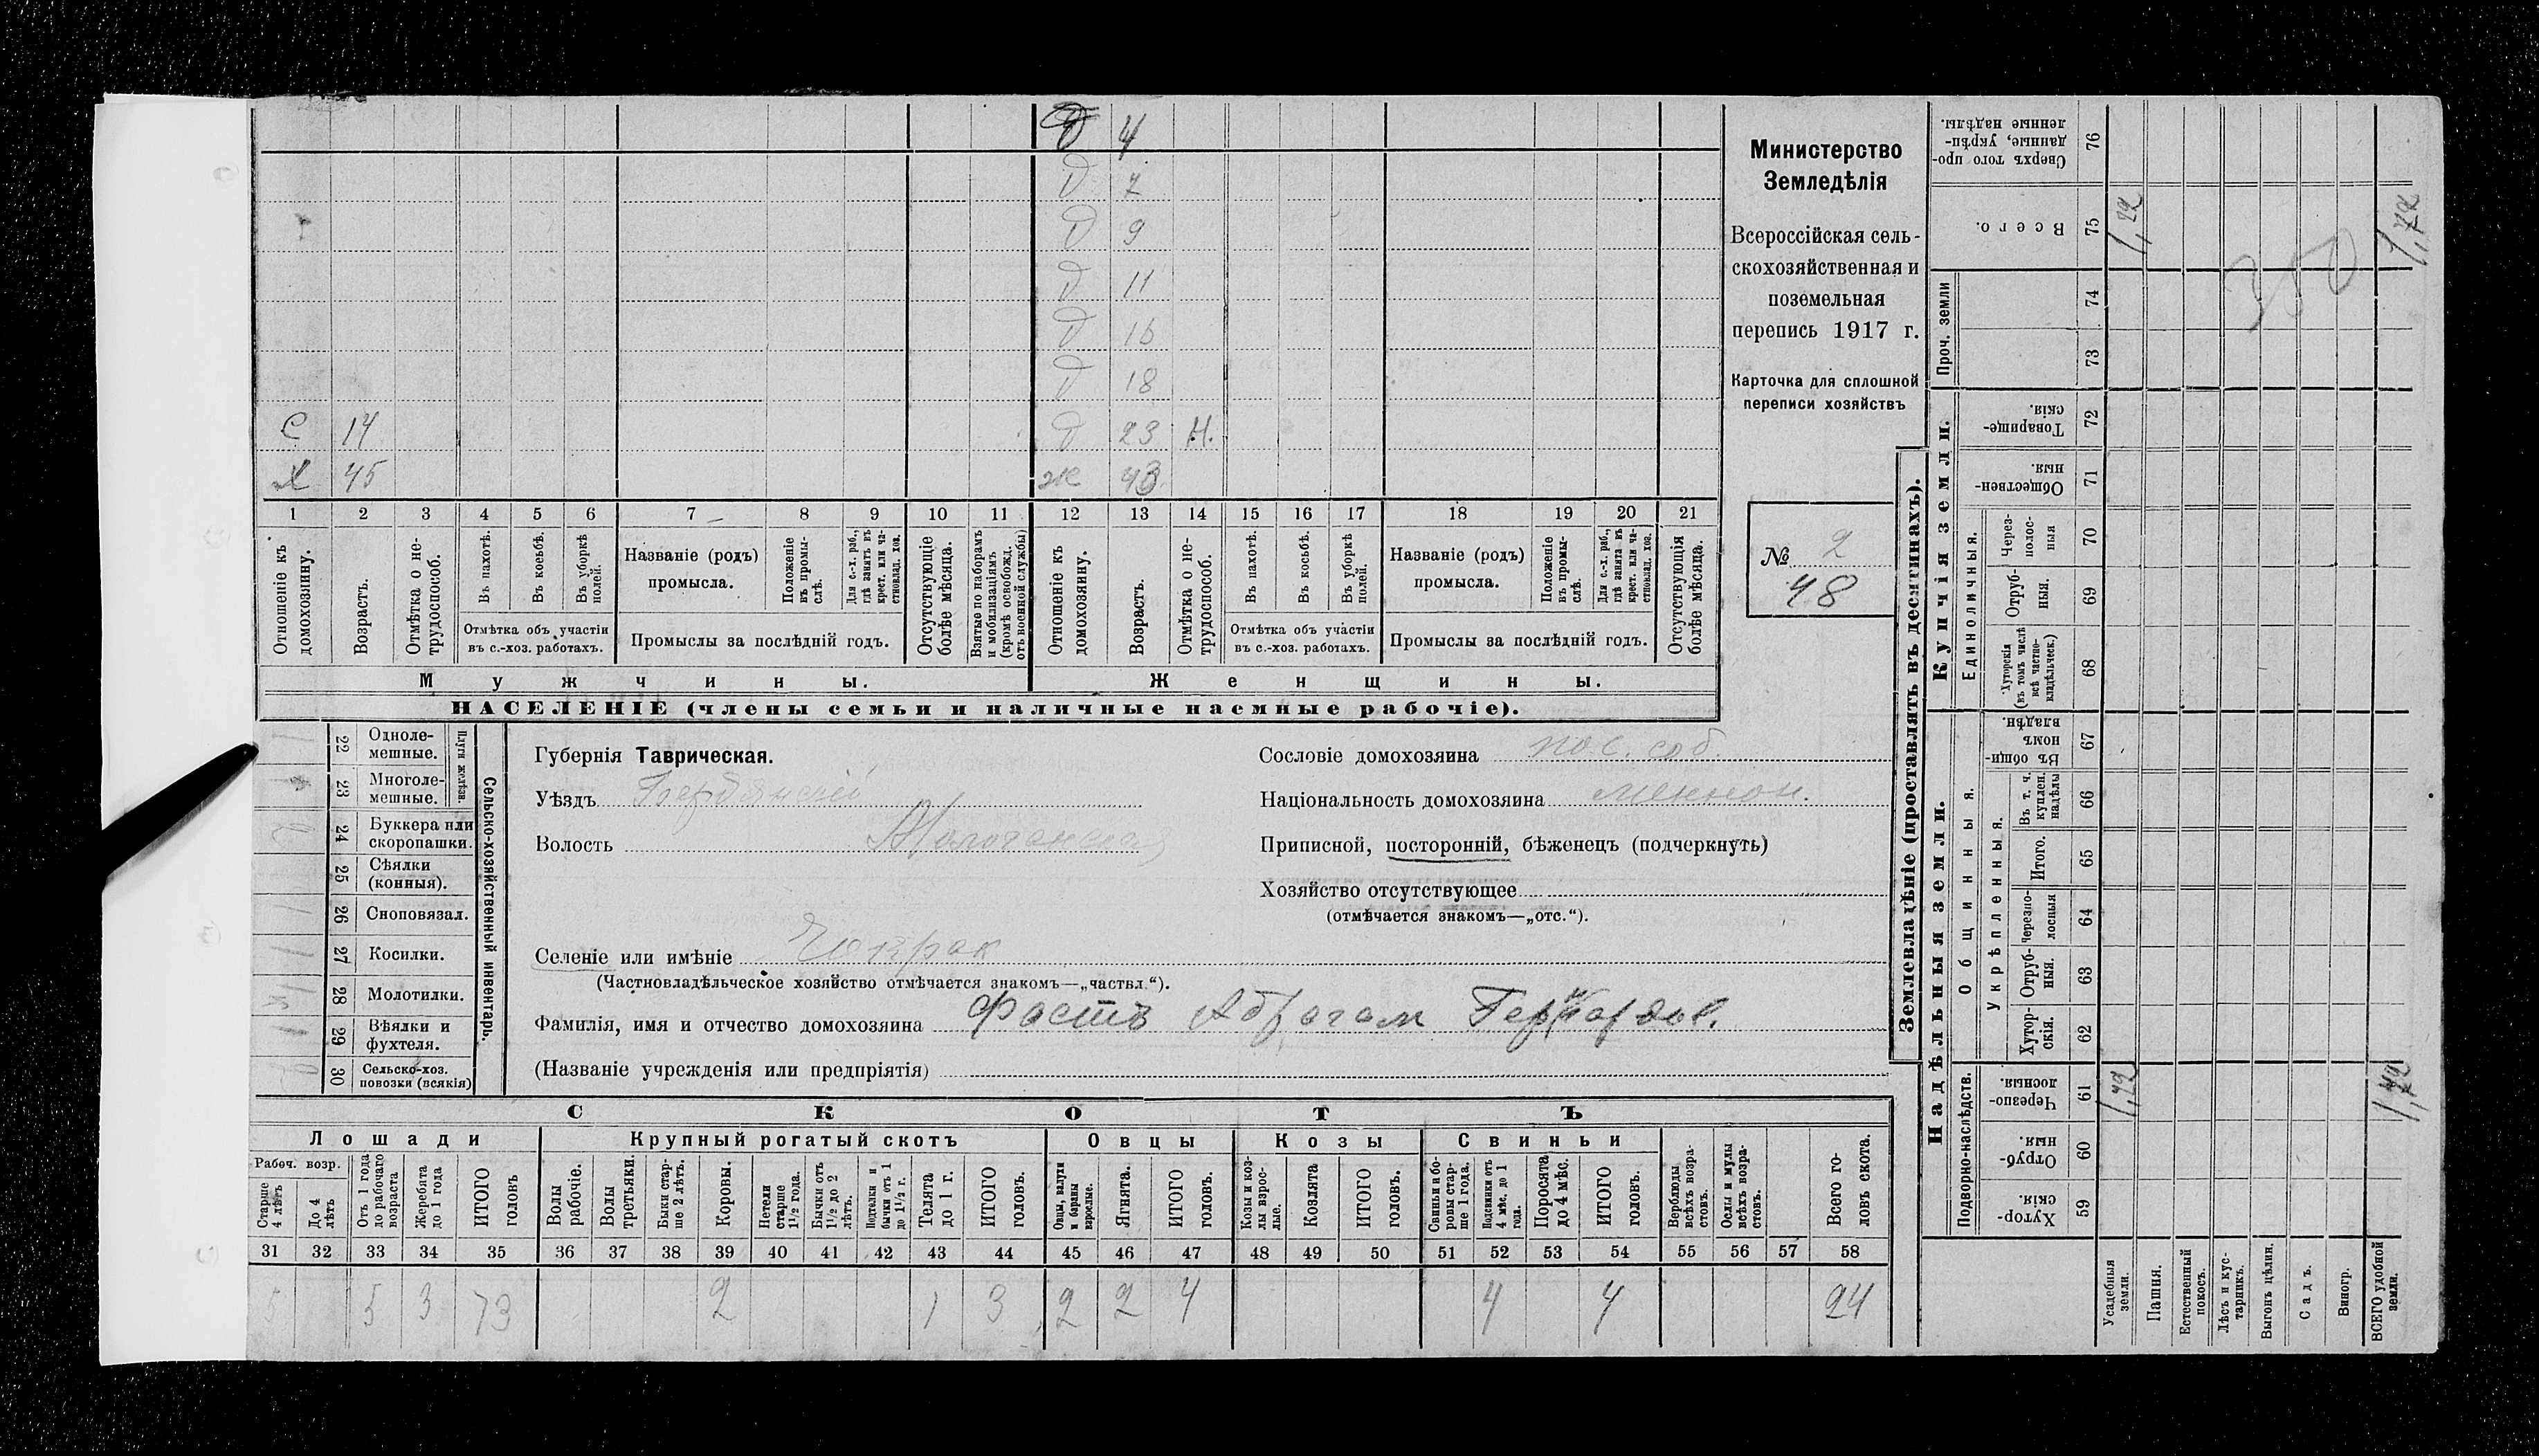 Ѳ 4
Д 7
Д 9
Д 11
Д 15
Д 18
С 14 Д 23 Н.
Х 45 Ж 43
1 2 3 4 5 6 7 8 9 10 11 12 13 14 15 16 17 18 19 20 21
Отношеніе къ домохозяину.
Возрастъ.
Отмѣтка о не-трудоспособ.
Въ пахотѣ.
Въ косьбѣ.
Въ уборкѣ полей.
Отмѣтка объ участіи въ с.-хоз. работахъ.
Названіе (родъ) промысла.
Положеніе въ промы-слѣ.
Для с.-х. раб., гдѣ занятъ въ крест. или ча-стновлад. хоз.
Промыслы за послѣдній годъ.
Отсутствующіе болѣе мѣсяца.
Взятые по наборамъ и мобилизаціямъ (кромѣ освобожд. отъ военной службы)
Отношеніе къ домохозяину.
Возрастъ.
Отмѣтка о не-трудоспособ.
Въ пахотѣ.
Въ косьбѣ.
Въ уборкѣ полей.
Отмѣтка объ участіи въ с.-хоз. работахъ.
Названіе (родъ) промысла.
Положеніе въ промы-слѣ.
Для с.-х. раб., гдѣ занята въ крест. или ча-стновлад. хоз.
Промыслы за послѣдній годъ.
Отсутствующія болѣе мѣсяца.
Мужчины. Женщины.
НАСЕЛЕНІЕ (члены семьи и наличные наемные рабочіе).
Министерство
Земледѣлія
Всероссійская сель-
скохозяйственная и
поземельная
перепись 1917 г.
Карточка для сплошной
переписи хозяйствъ
№ 2
48
Сельско-хозяйственный инвентарь.
Плуги желѣзн.
22 Одноле-мешные.
23 Многоле-мешные.
24 Буккера или скоропашки.
25 Сѣялки (конныя).
26 Сноповязал.
27 Косилки.
28 Молотилки.
29 Вѣялки и фухтеля.
30 Сельско-хоз. повозки (всякія)
Губернія Таврическая.
Уѣздъ Бердянскій
Волость
Селеніе или имѣніе Чокрак
(Частновладѣльческое хозяйство отмѣчается знакомъ—„частвл.“).
Фамилія, имя и отчество домохозяина Фастъ Абрагам Гергардов.
(Названіе учрежденія или предпріятія)
Сословіе домохозяина пос. соб.
Національность домохозяина меннон.
Приписной, посторонній, бѣженецъ (подчеркнуть)
Хозяйство отсутствующее
(отмѣчается знакомъ—„отс.“).
СКОТЪ
Лошади Крупный рогатый скотъ Овцы Козы Свиньи
Рабоч. возр.
Старше 4 лѣтъ
До 4 лѣтъ
Отъ 1 года до рабочаго возраста
Жеребята до 1 года
ИТОГО головъ
Волы рабочіе.
Волы третьяки.
Быки стар-ше 2 лѣтъ.
Коровы.
Нетели старше 1½ года.
Бычки отъ 1½ до 2 лѣтъ.
Подтелки и бычки отъ 1 до 1½ г.
Телята до 1 г.
ИТОГО головъ.
Овцы, валухи и бараны взрослые.
Ягнята.
ИТОГО головъ.
Козы и коз-лы взрос-лые.
Козлята
ИТОГО головъ.
Свиньи и бо-ровы стар-ше 1 года.
Подсвинки отъ 4 мѣс. до 1 года.
Поросята до 4 мѣс.
ИТОГО головъ.
Верблюды всѣхъ возра-стовъ.
Ослы и мулы всѣхъ возра-стовъ.
Всего го-ловъ скота.
31 32 33 34 35 36 37 38 39 40 41 42 43 44 45 46 47 48 49 50 51 52 53 54 55 56 57 58
5 5 3 13 2 1 3 2 2 4 4 4 24
Землевладѣніе (проставлять въ десятинахъ).
Купчія земли.
Надѣльныя земли.
Сверхъ того про-данные, укрѣп-ленные надѣлы. 76
Всего. 75
Проч. земли 74 73
Товарище-скія. 72
Обществен-ныя. 71
Единоличныя.
Через-полос-ныя 70
Отруб-ныя. 69
Хуторскія (въ томъ числѣ всѣ частно-владѣльческ.) 68
Общинныя.
Въ общин-номъ владѣн. 67
Укрѣпленныя.
Въ т. ч. куплен. надѣлы 66
Итого. 65
Черезпо-лосныя 64
Отруб-ныя. 63
Хутор-скія. 62
Подворно-наслѣдств.
Черезпо-лосныя. 61
Отруб-ныя. 60
Хутор-скія. 59
Усадебныя земли.
Пашня.
Естественный покосъ.
Лѣсъ и кус-тарникъ.
Выгонъ цѣлин.
Садъ.
Виногр.
ВСЕГО удобной земли.
1,72
1,72
350
1,72
1,72